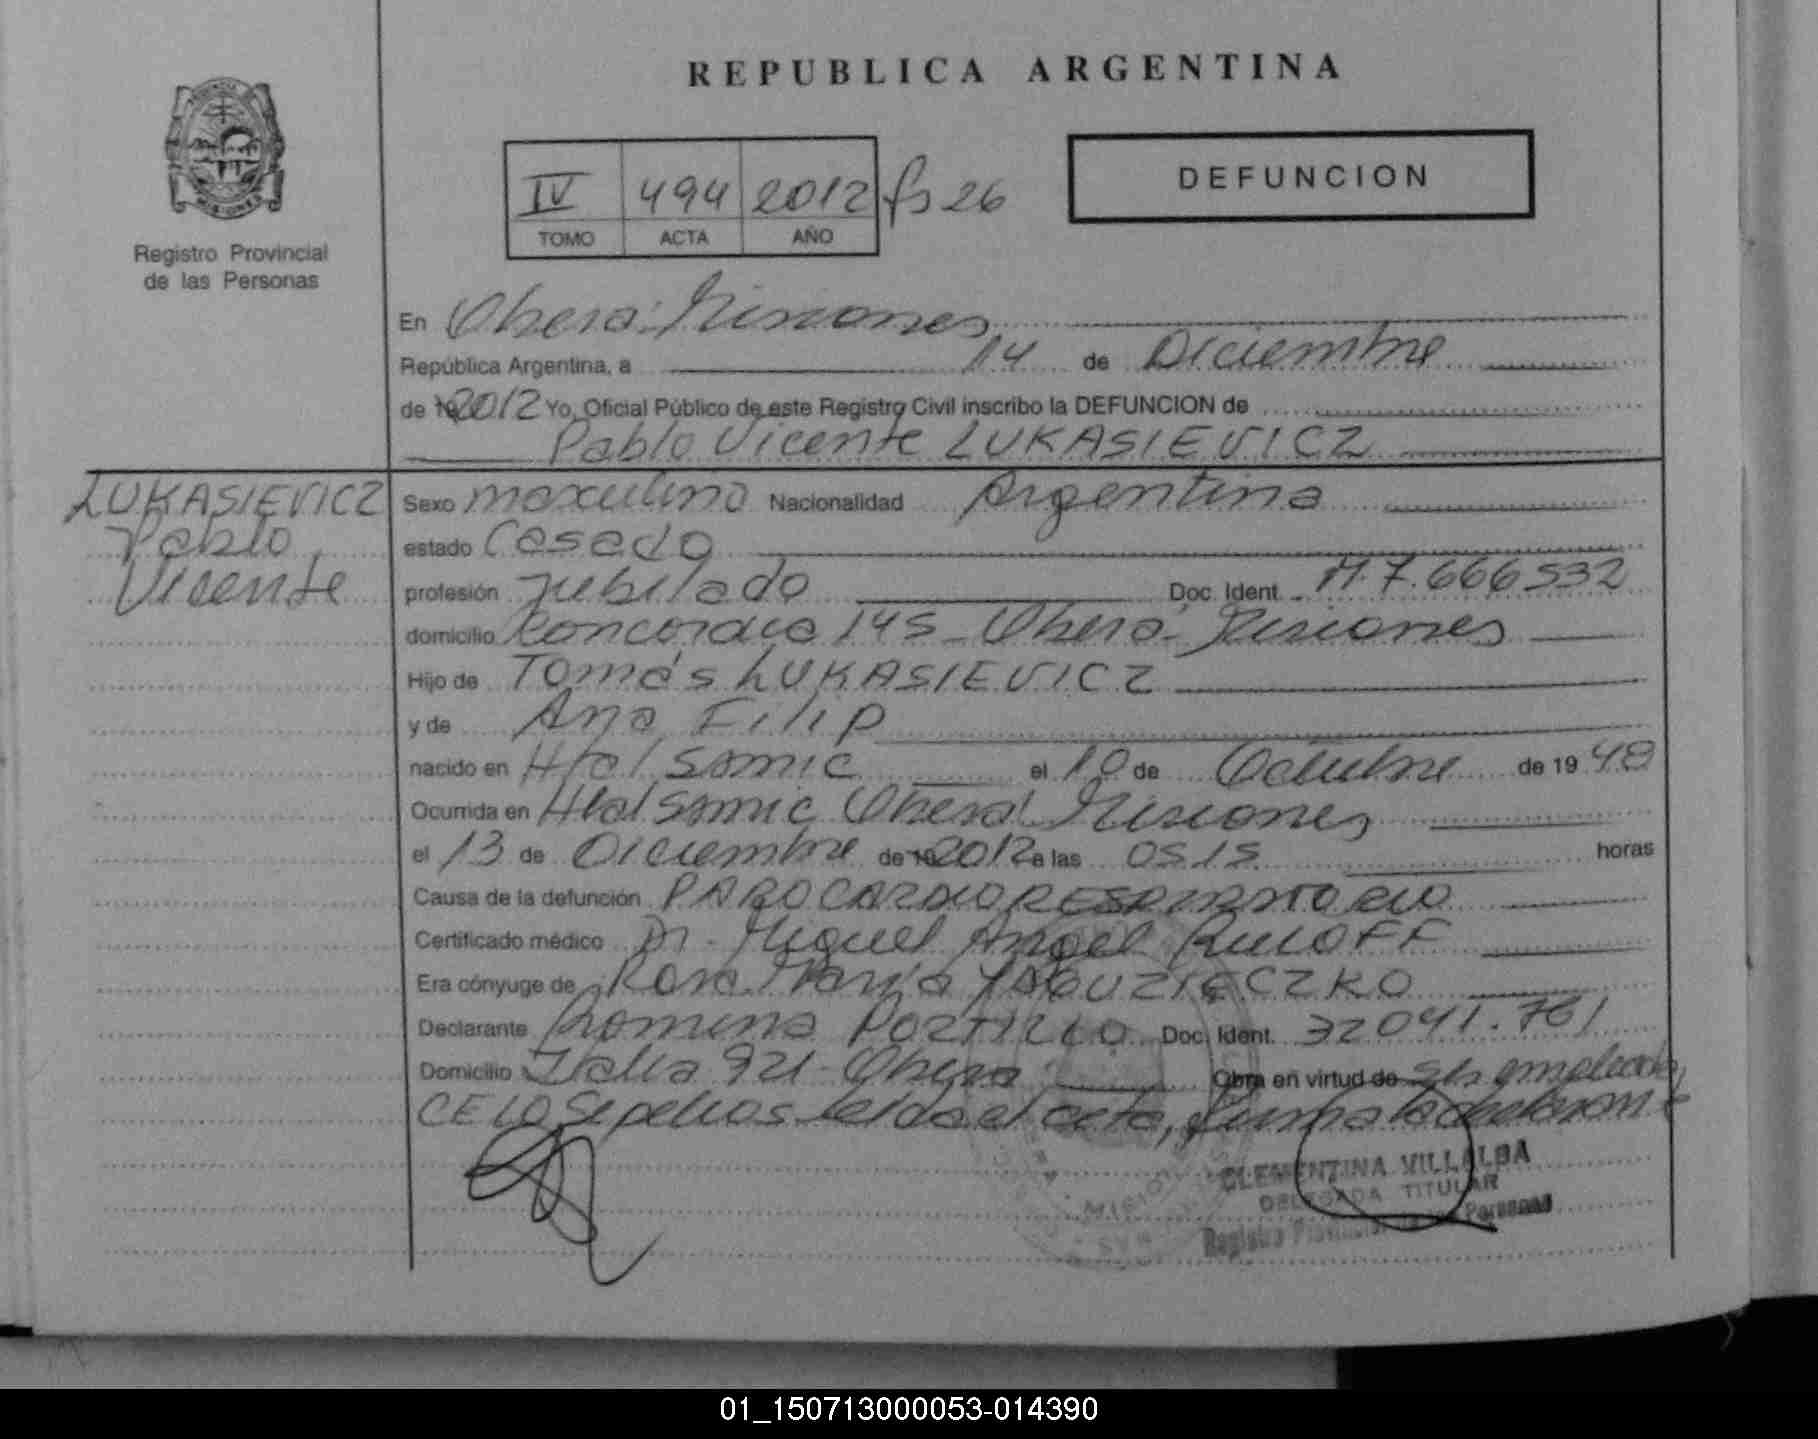 REPUBLICA ARGENTINA
Registro Provincial
de las Personas
IV 494 2012 fs 26
TOMO ACTA AÑO
DEFUNCION
En Oberá Misiones
República Argentina, a 14 de Diciembre
de 19 2012 Yo, Oficial Público de este Registro Civil inscribo la DEFUNCION de
Pablo Vicente LUKASIEVICZ
LUKASIEVICZ
Pablo
Vicente
Sexo masculino Nacionalidad Argentina
estado Casado
profesión Jubilado Doc. Ident. M.7.666532
domicilio Concordia 145 - Oberá - Misiones
Hijo de Tomás LUKASIEVICZ
y de Ana Filip
nacido en Htal Samic el 10 de Octubre de 19 48
Ocurrida en Htal Samic Oberá Misiones
el 13 de Diciembre de 19 2012 a las 05.15 horas
Causa de la defunción PARO CARDIORESPIRATORIO
Certificado médico Dr. Miguel Angel
Era cónyuge de Rosa María
Declarante Romina PORTILLO Doc. Ident. 32041.761
Domicilio Italia 921 - Oberá Obra en virtud de ser empleada
CELO Sepelios leida el acta, firma la declarante
CLEMENTINA VILLALBA
DELEGADA TITULAR
Registro Provincial de las Personas
01_150713000053-014390